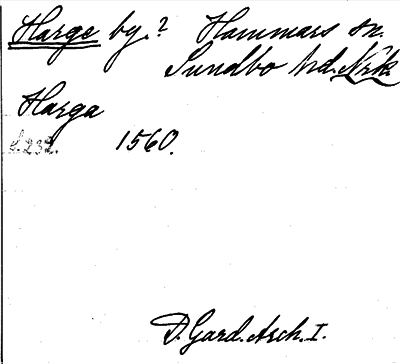 Harge by.? Hammars sn.
Sundbo hd. Nrk.
Harga
s. 232. 1560.
D. Gard. Arch. I.